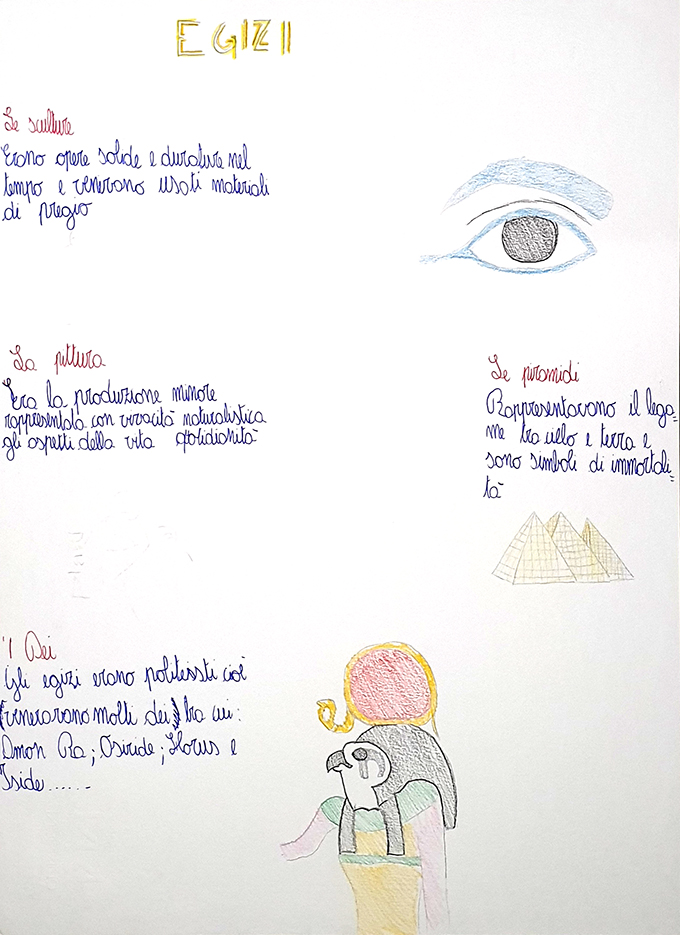 EGIZI
Le sculture
Erano opere solide e durature nel
tempo e venivano usati materiali
di pregio
La pittura
Era la produzione minore
rappresentata con vivacità naturalistica
gli aspetti della vita quotidianità
Le piramidi
Rappresentavano il lega=
me tra cielo e terra e
sono simboli di immortali=
tà
I Dei
Gli egizi erano politeisti cioè
(veneravano molti dei) tra cui:
Amon Ra; Osiride; Horus e
Iside......